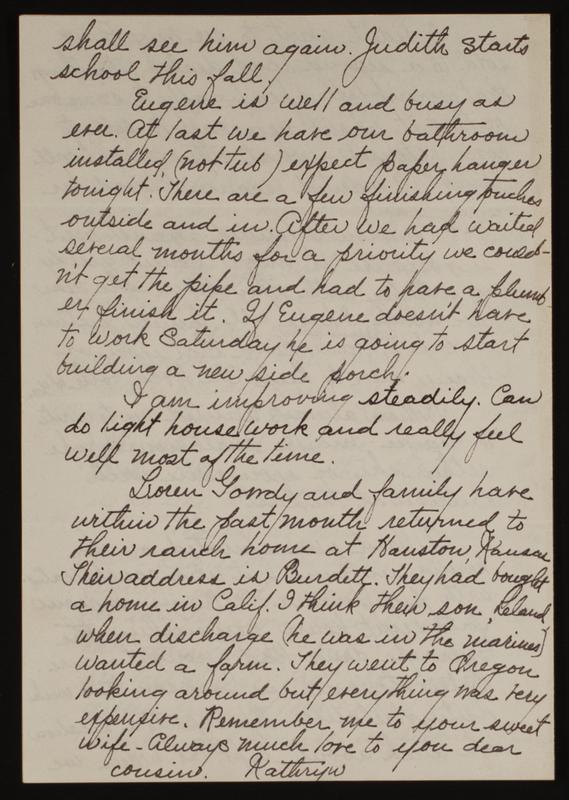 shall see him again. Judith starts
school this fall.
Eugene is well and busy as
ever. At last we have our bathroom
installed, (not tub) expect paper hanger
tonight. There are a few finishing touches
outside and in. After we had waited
several months for a priority we could-
n't get the pipe and had to have a plumb-
er finish it. If Eugene doesn't have
to work Saturday he is going to start
building a new side porch.
I am improving steadily. Can
do light house work and really feel
well most of the time.
Loren Gowdy and family have
within the past month returned to
their ranch home at Hanston, Kansas
Their address is Burdett. They had bought
a home in Calif. I think their son, Leland,
when discharge (he was in the marines)
wanted a farm. They went to Oregon
looking around but everything was very
expensive. Remember me to your sweet
wife - Always much love to you dear
cousin. Kathryn